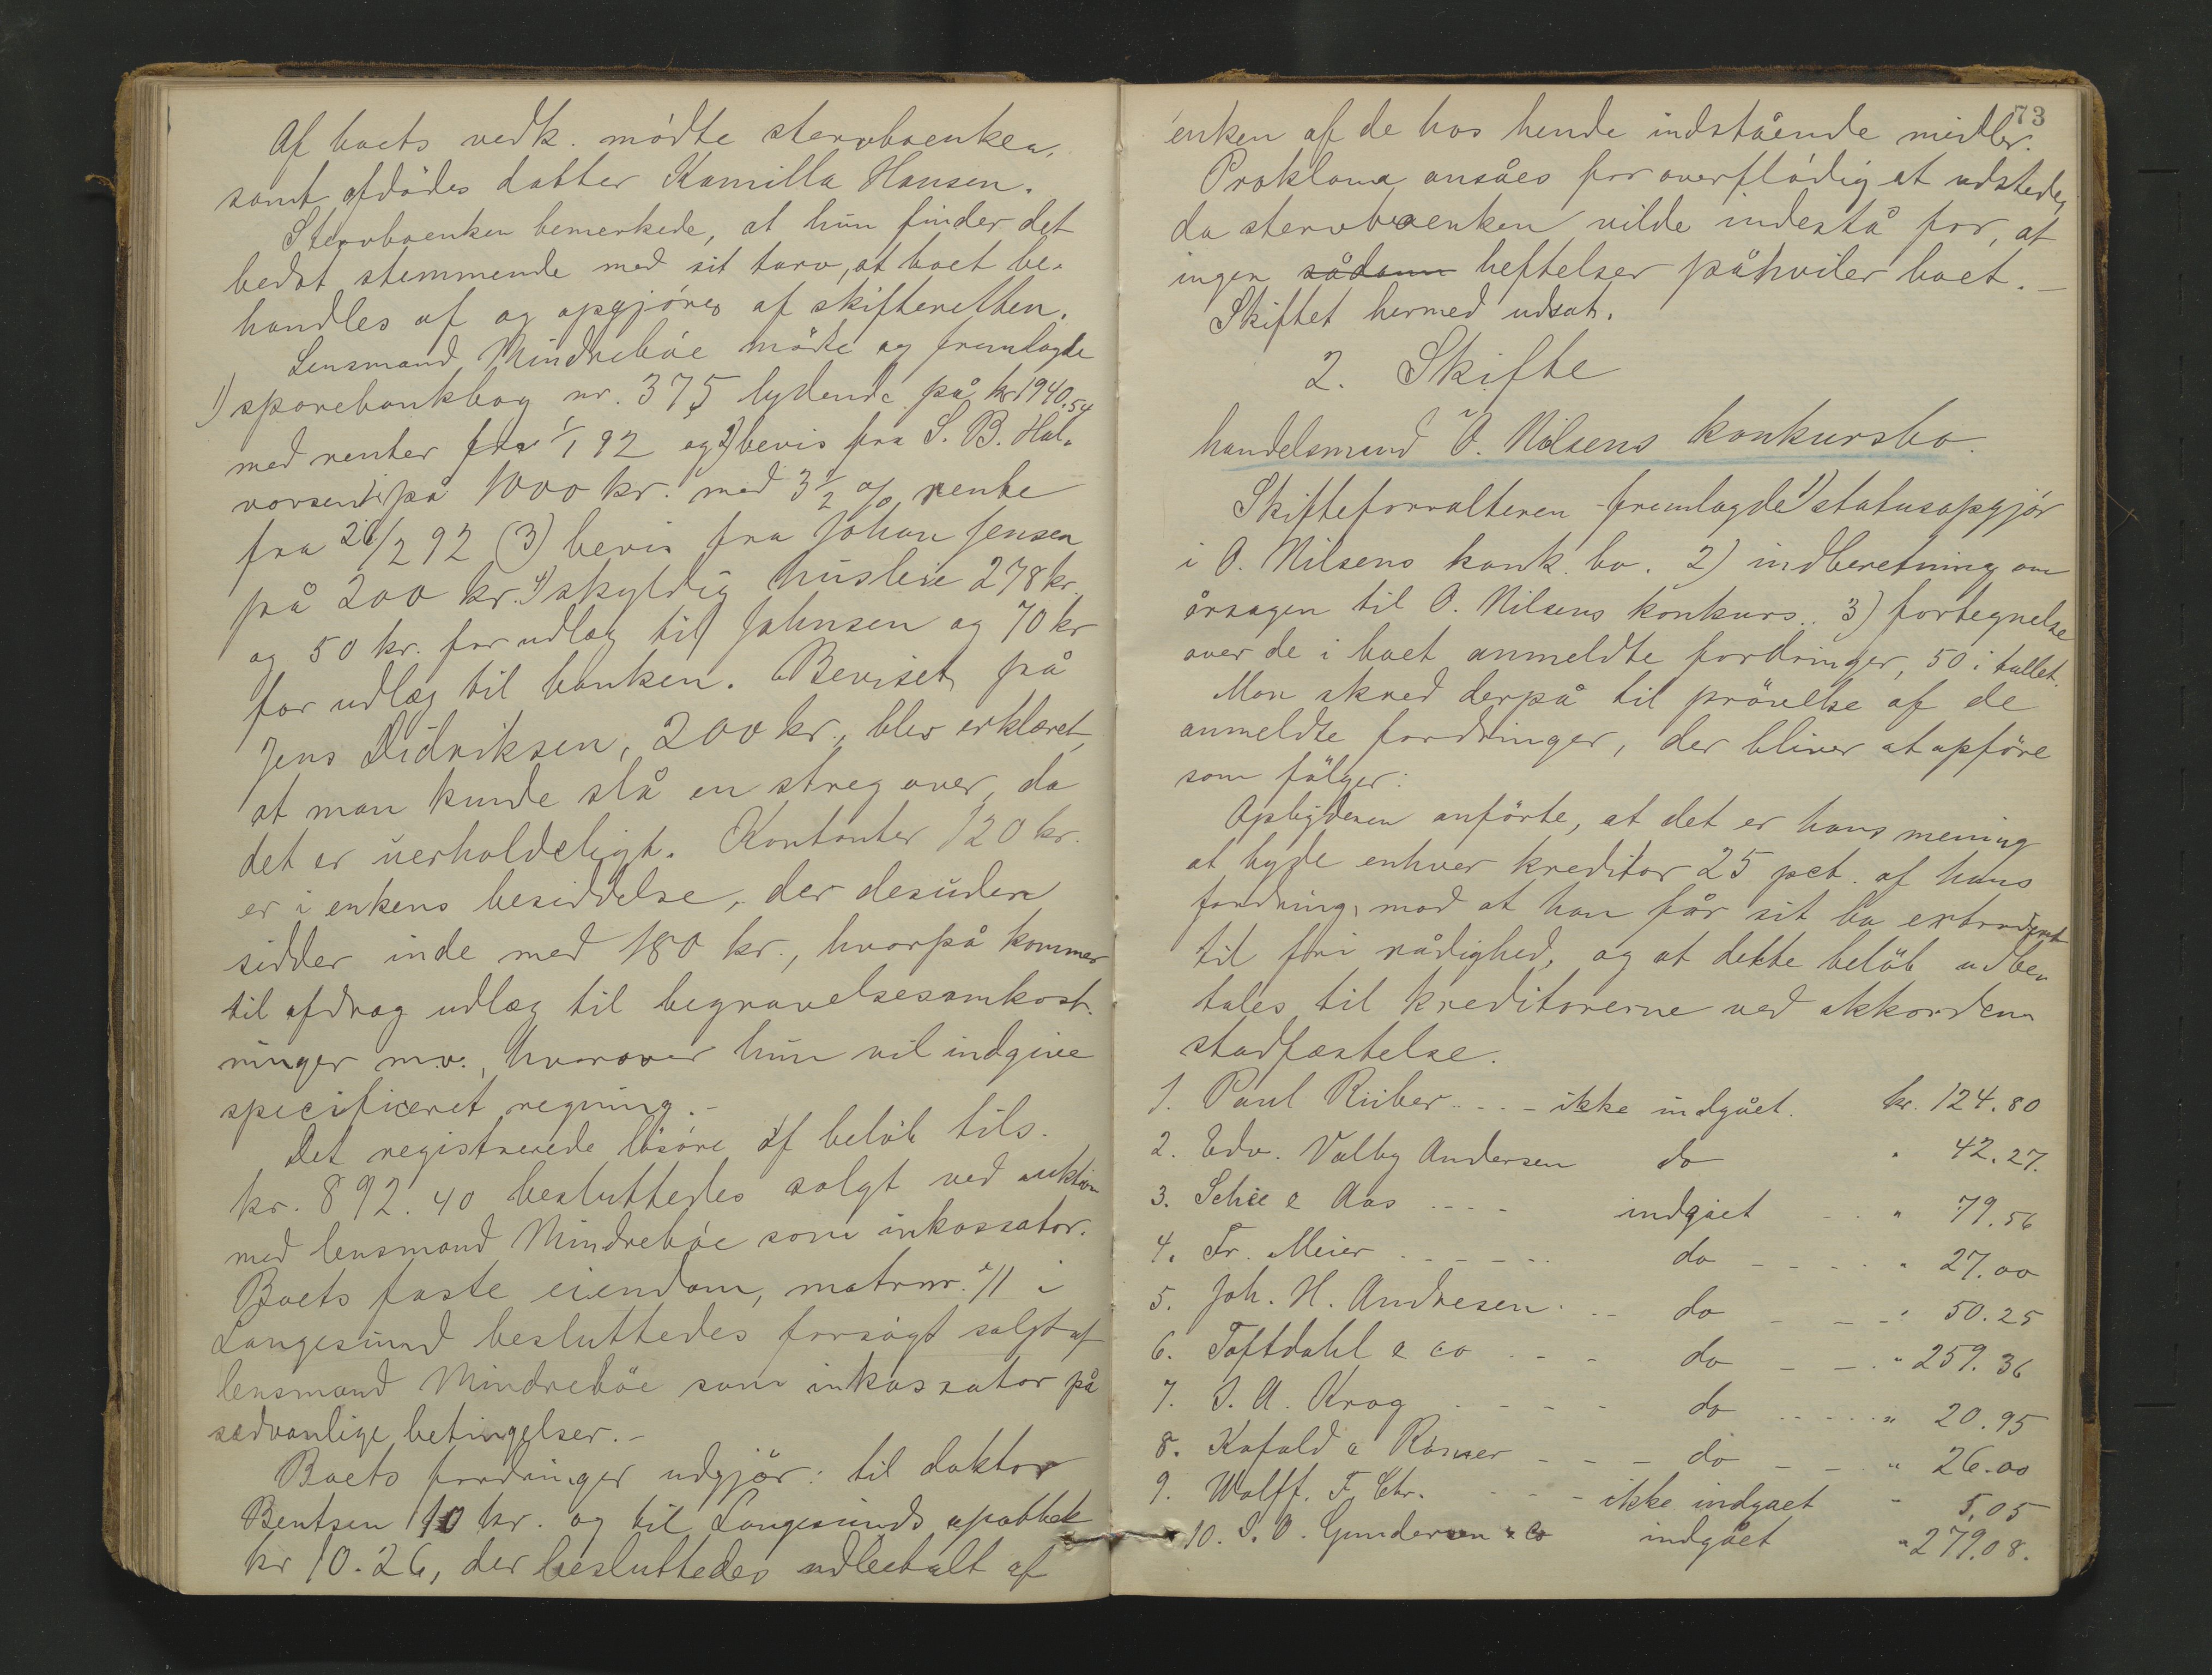 Af boets vedk. mødte stervboenken,
samt afdødes datter Kamilla Hansen.
Stervboenken bemerkede, at hun finder det
bedst stemmende med sit tarv, at boet be-
handles af og opgjøres af skifteretten.
Lensmand Mindrebøe mødte og fremlagde
1) sparebankbog nr. 375 lydende på kr 1940.54
med renter fra 1/1 92 og 2) bevis fra S. B. Hal-
vorsen på 1000 kr. med 3 1/2 % rente
fra 26/2 92 (3) bevis fra Johan Jensen
på 200 kr. 4) skyldig husleie 278 kr.
og 50 kr. for udlæg til Johnsen og 70 kr
for udlæg til banken. Beviset på
Jens Didriksen, 200 kr., blev erklæret,
at man kunde slå en streg over, da
det er uerholdeligt. Kontanter 120 kr.
er i enkens besiddelse, der desuden
sidder inde med 180 kr., hvorpå kommer
til afdrag udlæg til begravelsesomkost-
ninger m.v., hvorover hun vil indgive
specificeret regning.-
Det registrerede løsøre af beløb tils.
kr. 892.40 besluttedes solgt ved auktion
med lensmand Mindrebøe som inkassator.
Boets faste eiendom, matrnr. 71 i
Langesund besluttedes forsøgt solgt af
lensmand Mindrebøe som inkassator på
sædvanlige betingelser.-
Boets fordringer udgjør: til doktor
Bentsen 10 kr. og til Langesunds apothek
kr 10.26, der besluttedes udbetalt af
73
enken af de hos hende indstående midler.
Proklama ansåes for overflødig at udstede,
da stervboenken vilde indestå for, at
ingen sådann heftelser påhviler boet.-
Skiftet hermed udsat.
2. Skifte
handelsmand O. Nilsens konkursbo.
Skifteforvalteren fremlagde 1) statusopgjør
i O. Nilsens konk. bo. 2) indberetning om
årsagen til O. Nilsens konkurs.. 3) fortegnelse
over de i boet anmeldte fordringer, 50 i tallet.
Man skred derpå til prøvelse af de
anmeldte fordringer, der bliver at opføre
som følger:
Opbyderen anførte, at det er hans mening
at byde enhver kreditor 25 pct. af hans
fordring, mod at han får sit bo extraderet
til fri rådighed, og at dette beløb udbe-
tales til kreditorerne ved akkordens
stadfæstelse.
1. Paul Riiber .. - - ikke indgået. kr. 124.80
2. Edv. Valby Andersen do " 42.27.
3. Schie & Aas - - - - indgået - . " 79.56
4. Fr. Meier - - - - - do - - - - " 27.00
5. Joh. H. Andresen. - - do - - - " 50.25
6. Toftdahl & co - - - do - - . " 259.36
7. I. A. Krog - - - - do - - - - " 20.95
8. Kafald & Rønser - - - do - - " 26.00
9. Wolff. F. Chr. - - - ikke indgaet - 5.05
10. S. O. Gundersen & Co indgået " 279.08.